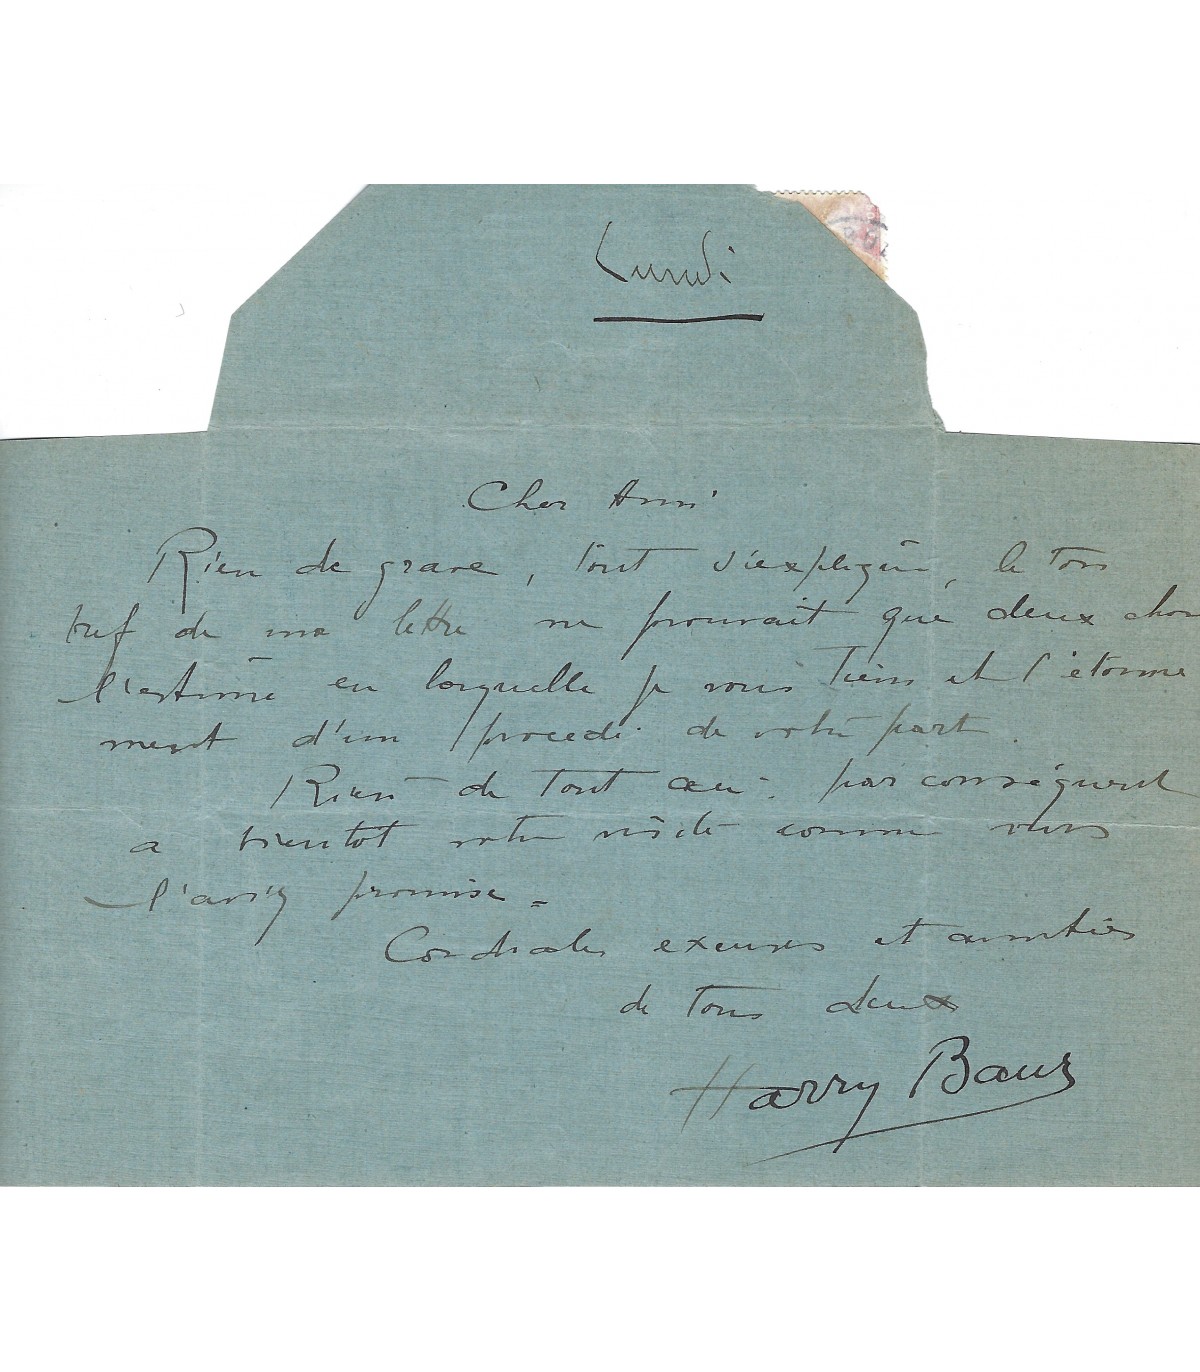 Lundi
Cher Ami
Rien de grave, tout s'explique, le ton
bref de ma lettre ne prouvait que deux chos
l'estime en laquelle je vous tiens et l'étonne
ment d'un procédé de votre part.
Rien de tout ceci. par conséquent
a bientot votre visite comme vous
l'aviez promise.
Cordiales excuses et amitiés
de tous deux
Harry Baur